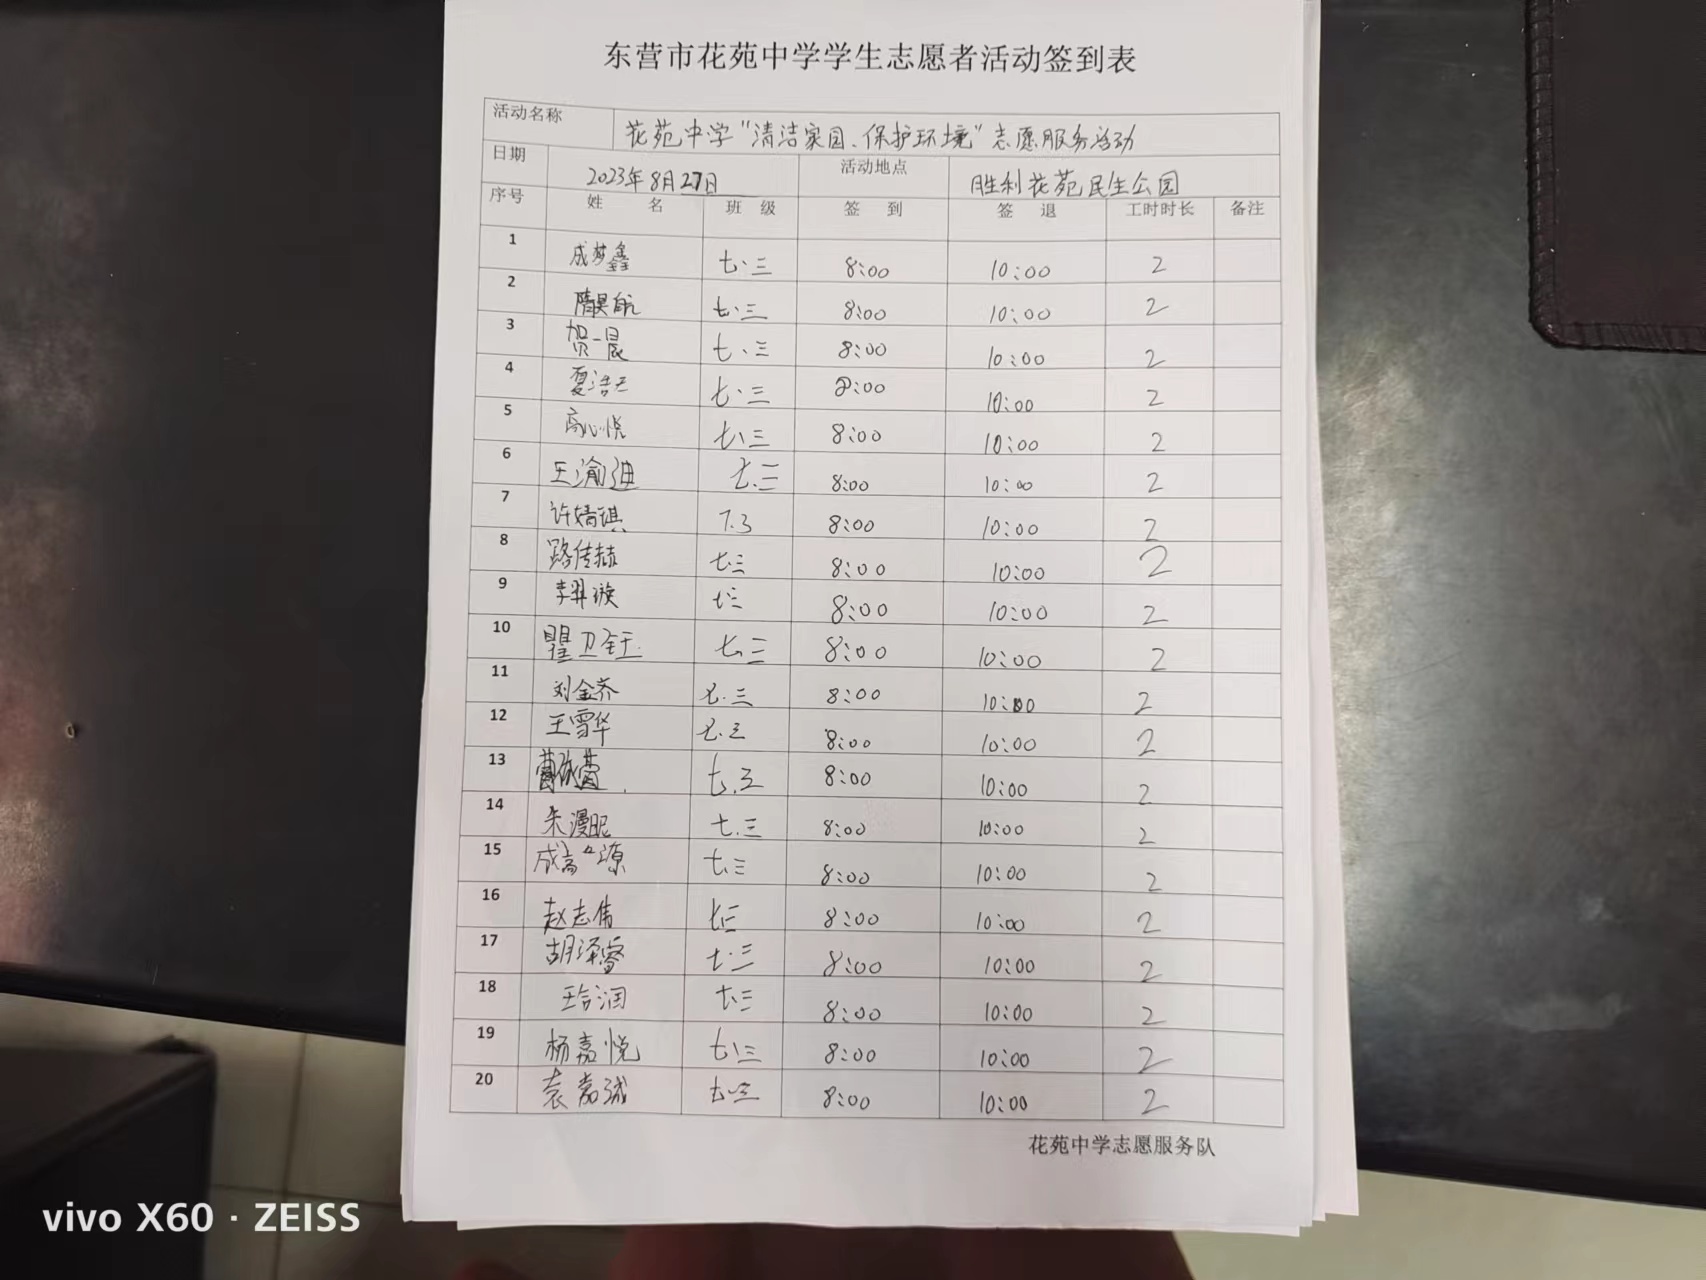 东营市花苑中学学生志愿者活动签到表
活动名称 花苑中学“清洁家园、保护环境”志愿服务活动
日期 2023年8月27日 活动地点 胜利花苑民生公园
序号 姓 名 班 级 签 到 签 退 工时时长 备注
1 成梦鑫 七.三 8:00 10:00 2
2 隋昊航 七.三 8:00 10:00 2
3 贺一晨 七.三 8:00 10:00 2
4 夏浩天 七.三 8:00 10:00 2
5 高心悦 七.三 8:00 10:00 2
6 王渝迪 七.三 8:00 10:00 2
7 许婧琪 7.3 8:00 10:00 2
8 路传赫 七.三 8:00 10:00 2
9 李羿璇 七三 8:00 10:00 2
10 瞿卫钰 七.三 8:00 10:00 2
11 刘金乔 七.三 8:00 10:00 2
12 王雪华 七.三 8:00 10:00 2
13 七.三 8:00 10:00 2
14 朱漫妮 七.三 8:00 10:00 2
15 成高源 七.三 8:00 10:00 2
16 赵志伟 七三 8:00 10:00 2
17 胡泽睿 七.三 8:00 10:00 2
18 润 七.三 8:00 10:00 2
19 杨嘉悦 七.三 8:00 10:00 2
20 袁嘉诚 七.三 8:00 10:00 2
花苑中学志愿服务队
vivo X60 · ZEISS